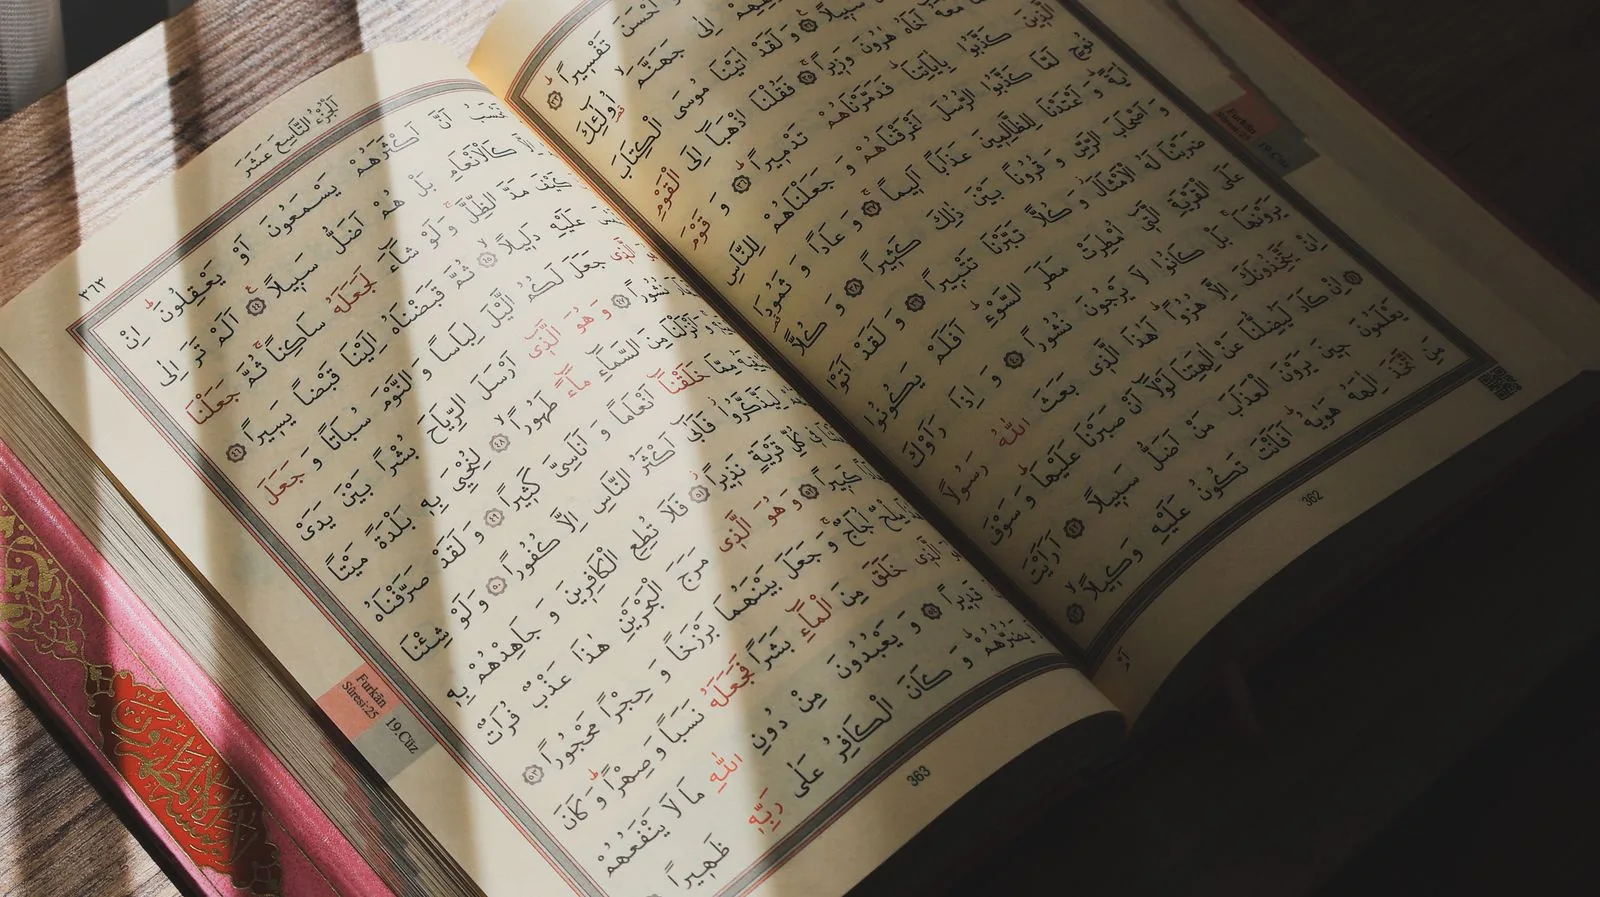 اَحْسَنَ تَفْسِيراًۜ ﴿٣٣﴾
اِلٰى جَهَنَّمَۙ اُو۬لٰٓئِكَ
سَبِيلاً ﴿٣٤﴾ وَلَقَدْ اٰتَيْنَا مُوسَى الْكِتَابَ
مَعَهُٓ اَخَاهُ هٰرُونَ وَزِيراًۚ ﴿٣٥﴾ فَقُلْنَا اذْهَبَٓا اِلَى الْقَوْمِ
الَّذِينَ كَذَّبُوا بِاٰيَاتِنَاۜ فَدَمَّرْنَاهُمْ تَدْمِيراًۜ ﴿٣٦﴾ وَقَوْمَ
نُوحٍ لَمَّا كَذَّبُوا الرُّسُلَ اَغْرَقْنَاهُمْ وَجَعَلْنَاهُمْ لِلنَّاسِ
اٰيَةًۜ وَاَعْتَدْنَا لِلظَّالِمِينَ عَذَاباً اَلِيماًۚ ﴿٣٧﴾ وَعَاداً وَثَمُودَا۬
وَاَصْحَابَ الرَّسِّ وَقُرُوناً بَيْنَ ذٰلِكَ كَثِيراً ﴿٣٨﴾ وَكُلاًّ
ضَرَبْنَا لَهُ الْاَمْثَالَۘ وَكُلاًّ تَبَّرْنَا تَتْبِيراً ﴿٣٩﴾ وَلَقَدْ اَتَوْا
عَلَى الْقَرْيَةِ الَّتِٓي اُمْطِرَتْ مَطَرَ السَّوْءِۜ اَفَلَمْ يَكُونُوا
يَرَوْنَهَاۚ بَلْ كَانُوا لَا يَرْجُونَ نُشُوراً ﴿٤٠﴾ وَاِذَا رَاَوْكَ
اِنْ يَتَّخِذُونَكَ اِلَّا هُزُواًۜ اَهٰذَا الَّذِي بَعَثَ اللّٰهُ رَسُولاً
﴿٤١﴾ اِنْ كَادَ لَيُضِلُّنَا عَنْ اٰلِهَتِنَا لَوْلَٓا اَنْ صَبَرْنَا عَلَيْهَاۜ وَسَوْفَ
يَعْلَمُونَ حِينَ يَرَوْنَ الْعَذَابَ مَنْ اَضَلُّ سَبِيلاً ﴿٤٢﴾ اَرَاَيْتَ
مَنِ اتَّخَذَ اِلٰهَهُ هَوٰيهُۜ اَفَاَنْتَ تَكُونُ عَلَيْهِ وَكِيلاًۙ ﴿٤٣﴾
Furkân
Sûresi:25
19.Cüz
362
اَلْجُزْءُ التَّاسِعَ عَشَرَ
٣٦٣
اَنَّ اَكْثَرَهُمْ يَسْمَعُونَ اَوْ يَعْقِلُونَۜ اِنْ
كَالْاَنْعَامِ بَلْ هُمْ اَضَلُّ سَبِيلاً۟ ﴿٤٤﴾ اَلَمْ تَرَ اِلٰى
كَيْفَ مَدَّ الظِّلَّۚ وَلَوْ شَٓاءَ لَجَعَلَهُ سَاكِناًۚ ثُمَّ جَعَلْنَا
عَلَيْهِ دَلِيلاًۙ ﴿٤٥﴾ ثُمَّ قَبَضْنَاهُ اِلَيْنَا قَبْضاً يَسِيراً ﴿٤٦﴾
الَّذِي جَعَلَ لَكُمُ الَّيْلَ لِبَاساً وَالنَّوْمَ سُبَاتاً وَجَعَلَ
نُشُوراً ﴿٤٧﴾ وَهُوَ الَّذِٓي اَرْسَلَ الرِّيَاحَ بُشْراً بَيْنَ يَدَيْ
وَاَنْزَلْنَا مِنَ السَّمَٓاءِ مَٓاءً طَهُوراًۙ ﴿٤٨﴾ لِنُحْيِيَ بِهِ بَلْدَةً مَيْتاً
مِمَّا خَلَقْنَٓا اَنْعَاماً وَاَنَاسِيَّ كَثِيراً ﴿٤٩﴾ وَلَقَدْ صَرَّفْنَاهُ
لِيَذَّكَّرُواۘ فَاَبٰٓى اَكْثَرُ النَّاسِ اِلَّا كُفُوراً ﴿٥٠﴾ وَلَوْ شِئْنَا
فِي كُلِّ قَرْيَةٍ نَذِيراًۘ ﴿٥١﴾ فَلَا تُطِعِ الْكَافِرِينَ وَجَاهِدْهُمْ بِهِ
كَبِيراً ﴿٥٢﴾ وَهُوَ الَّذِي مَرَجَ الْبَحْرَيْنِ هٰذَا عَذْبٌ فُرَاتٌ
اُجَاجٌۚ وَجَعَلَ بَيْنَهُمَا بَرْزَخاً وَحِجْراً مَحْجُوراً ﴿٥٣﴾
الَّذِي خَلَقَ مِنَ الْمَٓاءِ بَشَراً فَجَعَلَهُ نَسَباً وَصِهْراًۜ وَكَانَ
قَدِيراً ﴿٥٤﴾ وَيَعْبُدُونَ مِنْ دُونِ اللّٰهِ مَا لَا يَنْفَعُهُمْ
يَضُرُّهُمْۜ وَكَانَ الْكَافِرُ عَلٰى رَبِّهِ ظَهِيراً
Furkân
Sûresi:25
19.Cüz
363